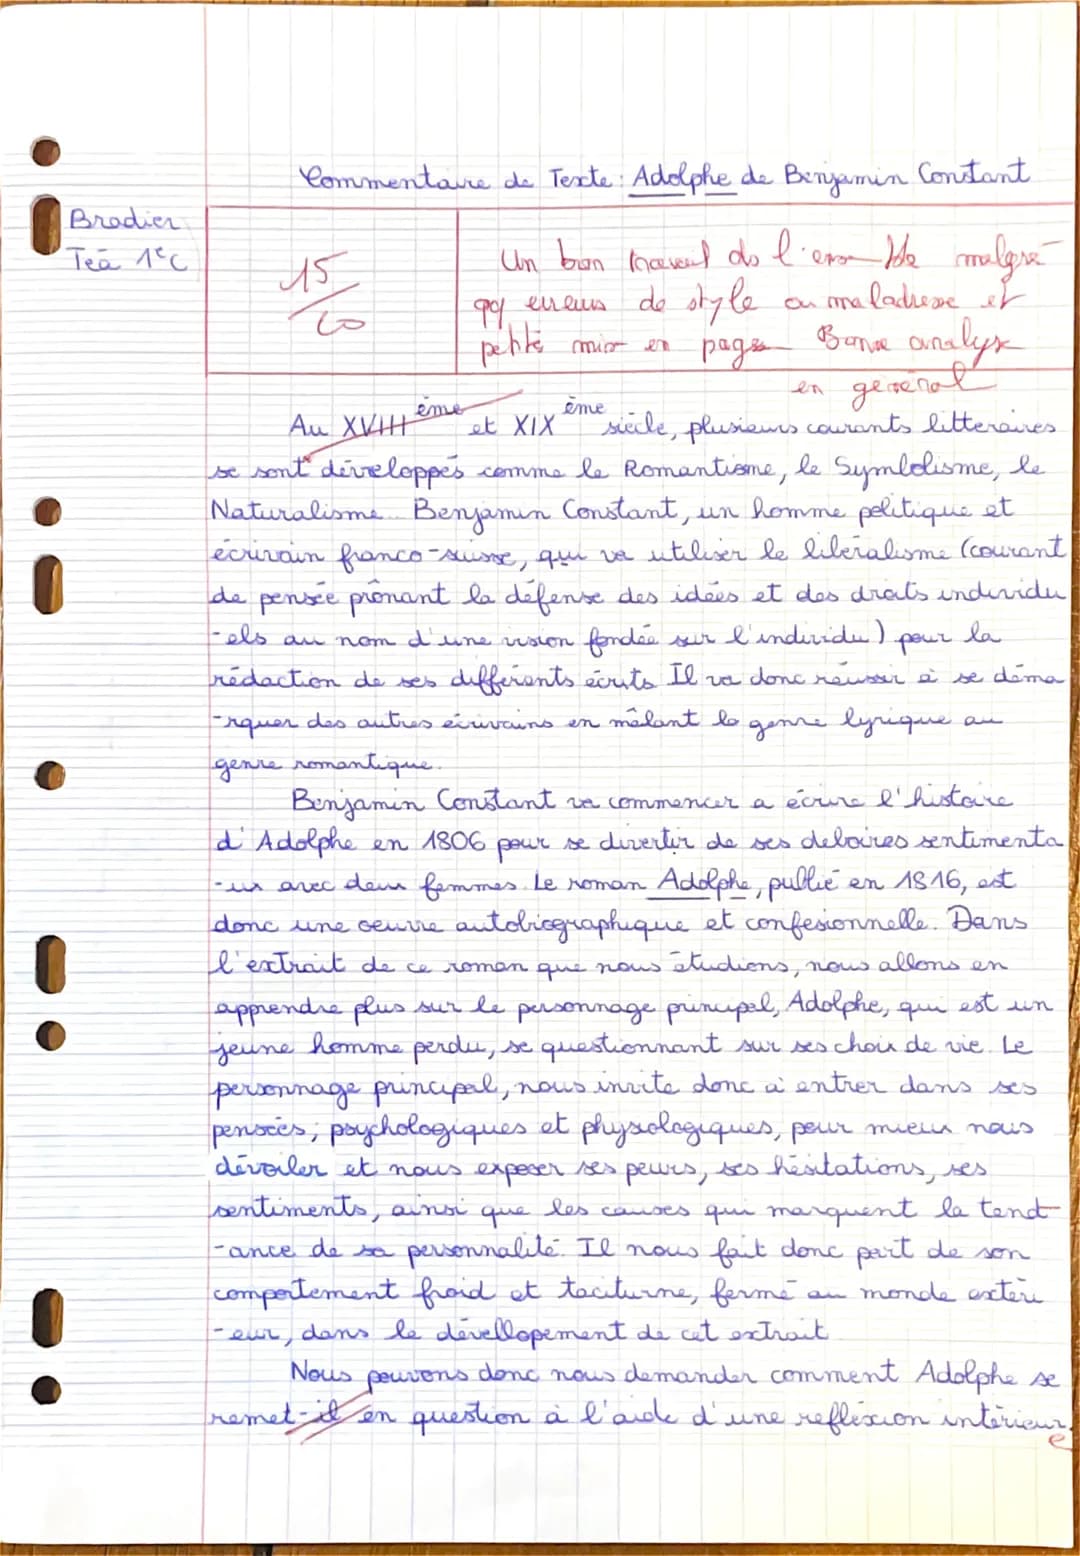 Commentaire de Texte : Adolphe de Benjamin Constant
Bradier
Téa 1eC
15/20
Un bon travail ds l'ensemble malgré
qq erreurs de style ou maladresse et
petite mise en page Bonne analyse
en général
Au XVIII ème et XIX ème siècle, plusieurs courants litteraires
se sont développés comme le Romantisme, le Symbolisme, le
Naturalisme.. Benjamin Constant, un homme politique et
écrivain franco-suisse, qui va utiliser le libéralisme (courant
de pensée prônant la défense des idées et des droits individu
-els au nom d'une vision fondée sur l'individu) pour la
rédaction de ses différents écrits Il va donc réussir à se déma
-rquer des autres écrivains en mêlant le genre lyrique au
genre romantique.
Benjamin Constant va commencer a écrire l'histoire
d'Adolphe en 1806 pour se divertir de ses deboires sentimenta
-ux avec deux femmes. Le roman Adolphe, publié en 1816, est
donc une oeuvre autobiographique et confesionnelle. Dans
l'extrait de ce roman que nous étudions, nous allons en
apprendre plus sur le personnage principal, Adolphe, qui est un
jeune homme perdu, se questionnant sur ses choix de vie. Le
personnage principal, nous invite donc à entrer dans ses
pensées, psychologiques et physiologiques, pour mieux nous
dévoiler et nous exposer ses peurs, ses hésitations, ses
sentiments, ainsi que les causes qui marquent la tend
-ance de sa personnalité. Il nous fait donc part de son
comportement froid et taciturne, fermé au monde extéri
-eur, dans le dévellopement de cet extrait.
Nous pouvons donc nous demander comment Adolphe se
remet-il en question à l'aide d'une refléxion intérieure